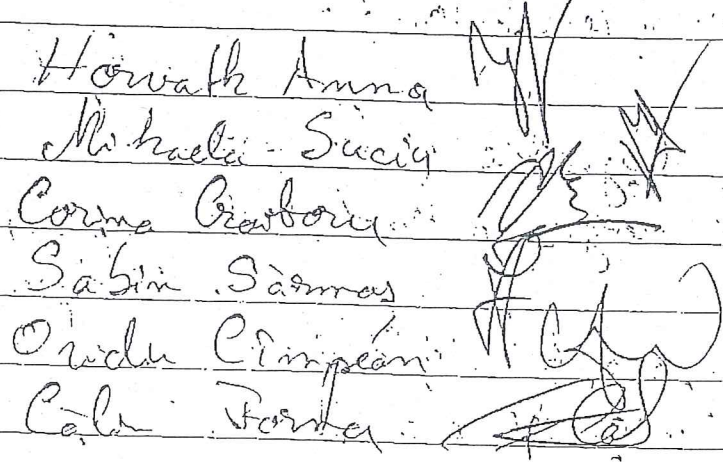 Horvath Anna
Mihaela Suciu
Corina
Sabin Sărmaș
Ovidiu Cîmpean
Călin Forţa